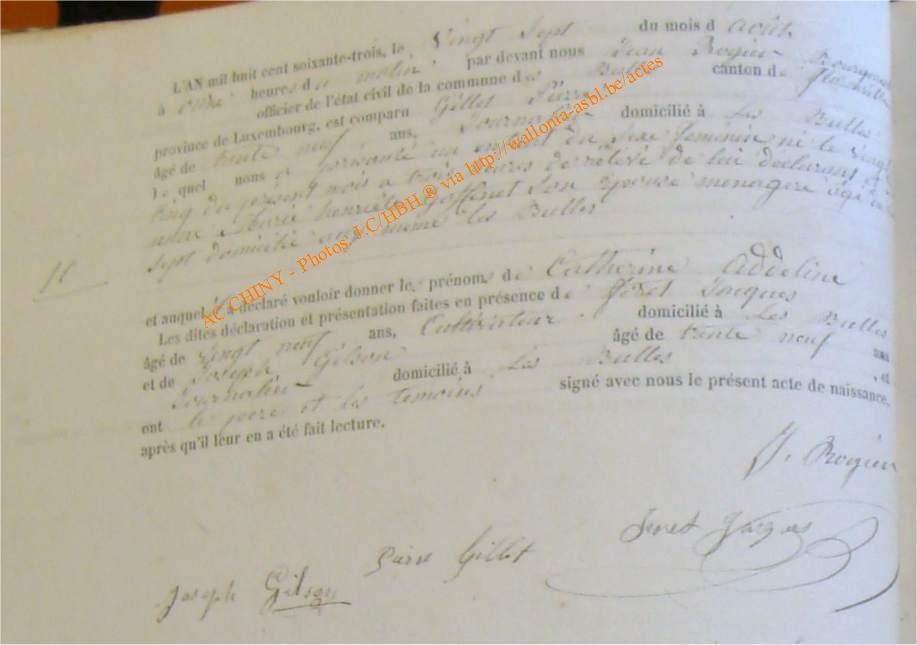 L'AN mil huit cent soixante-trois, le Vingt Sept du mois d août
à onze heures du matin par devant nous Jean Rogier Bourgmestre
officier de l'état civil de la commune des Bulles canton de Florenville
province de Luxembourg, est comparu Gillet Pierre
âgé de trente neuf ans, Journalier domicilié à Les Bulles
lequel nous a présenté un enfant du sexe feminin né le vingt
cinq du présent mois a trois heures de relevé de lui déclarant et de
Marie Henriette Goffinet son epouse menagere âgé de
sept domicilié aux même les Bulles
11
et auquel il a déclaré vouloir donner les prénoms de Catherine Addeline
Les dites déclaration et présentation faites en présence de Féret Jacques
âgé de vingt neuf ans, Cultivateur domicilié à Les Bulles
et de Joseph Gilson âgé de trente neuf ans
Journalier domicilié à Les Bulles , et
ont le pere et les temoins signé avec nous le présent acte de naissance,
après qu'il leur en a été fait lecture.
J. Rogier
Jacques
Pierre Gillet
Joseph Gilson
AC CHINY - Photos J.C/HBH ® via http://wallonia-asbl.be/actes